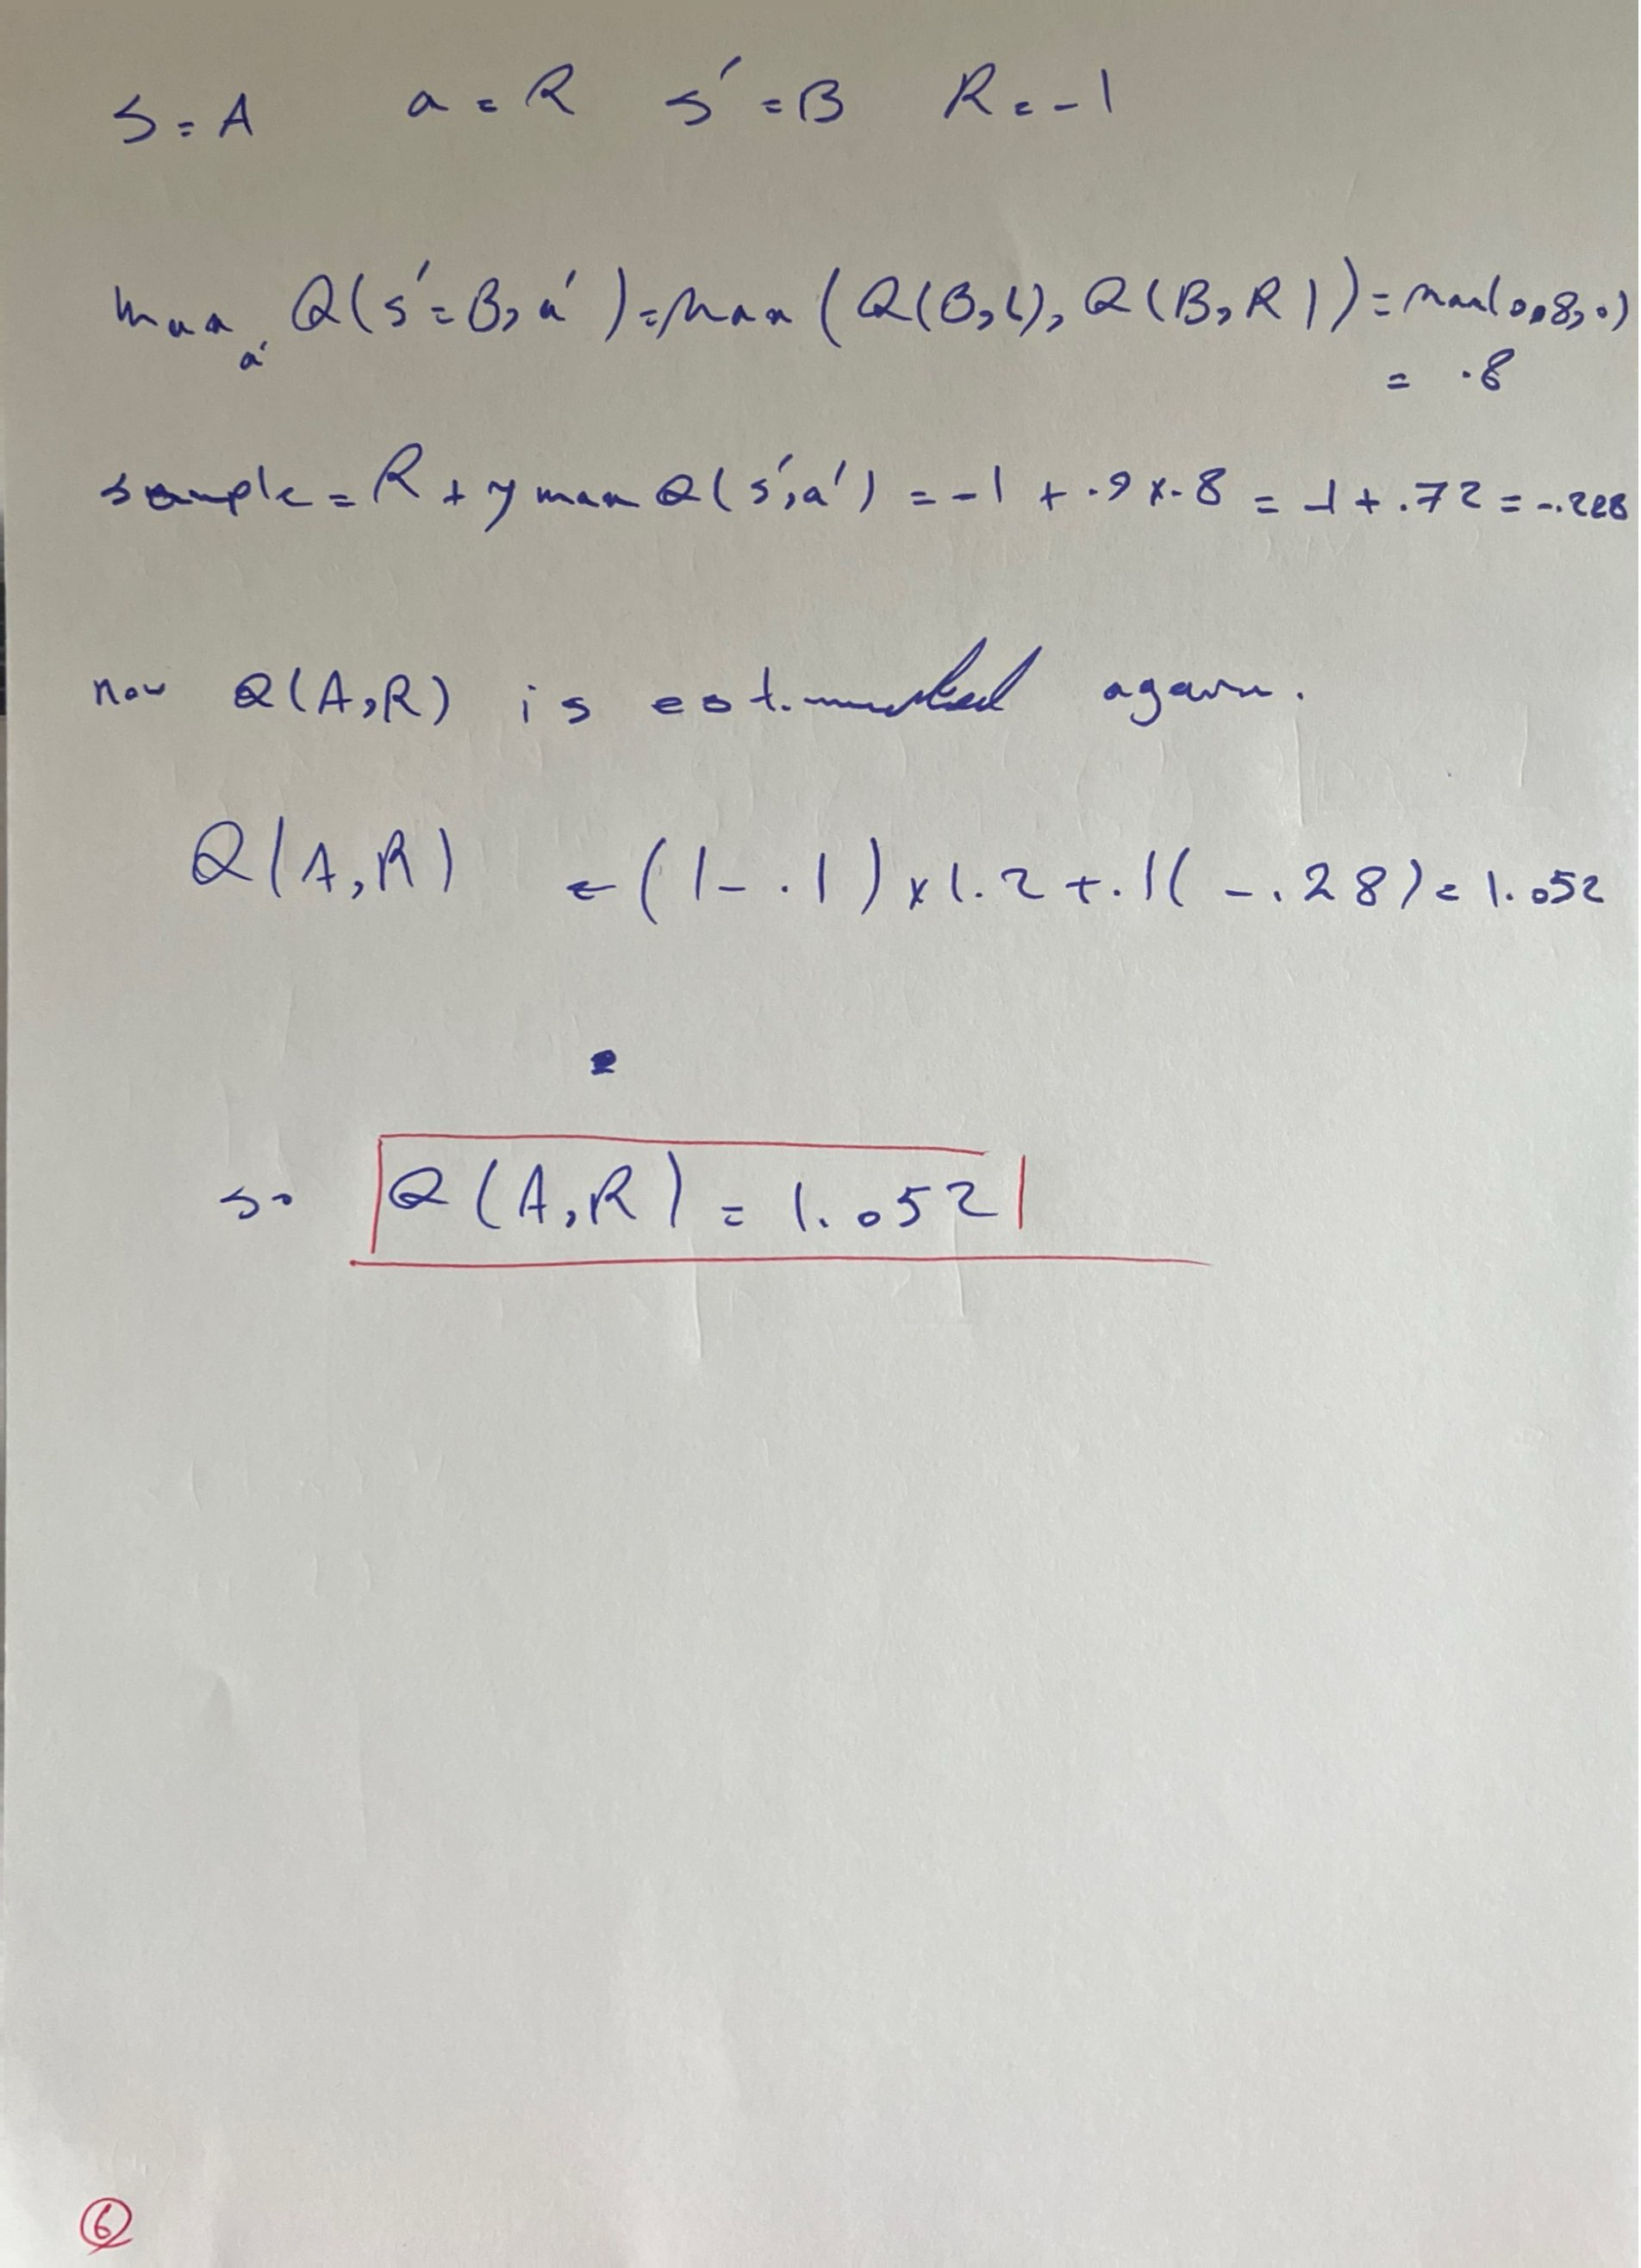 S = A a = R s' = B R = -1
max a' Q(s' = B, a') = max (Q(B, L), Q(B, R)) = max(0.8, 0)
= .8
sample = R + γ max Q(s', a') = -1 + .9 x .8 = -1 + .72 = -.288
now Q(A, R) is estimated again.
Q(A, R) = (1 - .1) x 1.2 + .1( - .28) = 1.052
so Q(A, R) = 1.052
6